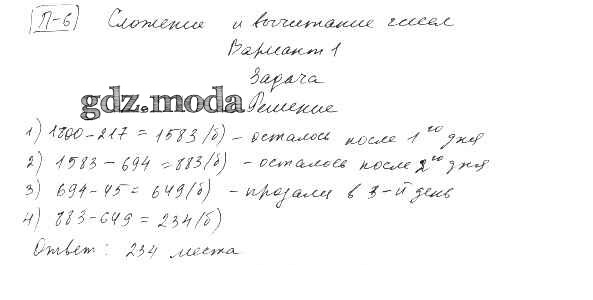 П-6 Сложение и вычитание чисел
Вариант 1
Задача
gdz.moda Решение
1) 1800-217 = 1583 (б) - осталось после 1го дня
2) 1583 - 694 = 883 (б) - осталось после 2го дня
3) 694-45 = 649 (б) - продали в 3-й день
4) 883-649 = 234 (б)
Ответ: 234 места